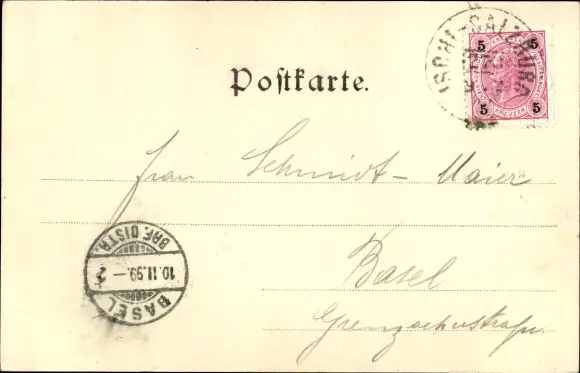 ISCHL-SALZBURG
5 5
5 5
KREUZER
Postkarte.
Frau Schmidt-Maier
BRF. DISTR.
10.11.99.–2
BASEL
Basel
Grenzacherstraße